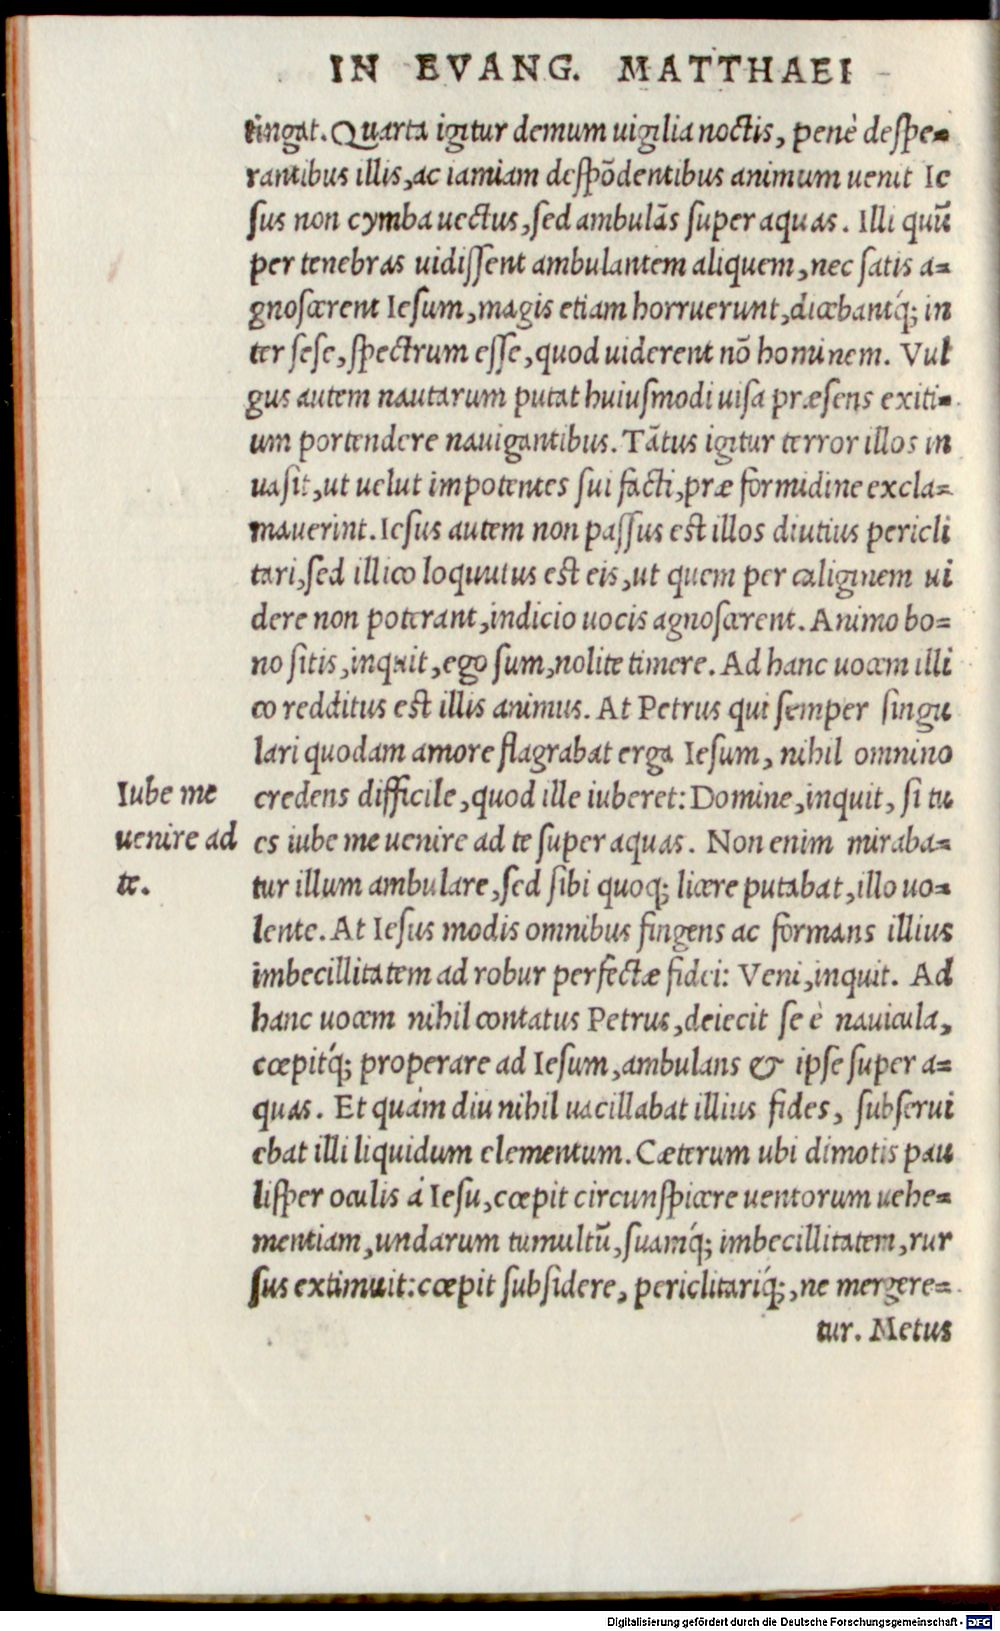 IN EVANG. MATTHAEI
tingat. Quarta igitur demum uigilia noctis, penè despe=
rantibus illis, ac iamiam despõdentibus animum uenit Ie
sus non cymba uectus, sed ambulãs super aquas. Illi quũ
per tenebras uidissent ambulantem aliquem, nec satis a=
gnoscerent Iesum, magis etiam horruerunt, dicebantq́; in
ter sese, spectrum esse, quod uiderent nõ hominem. Vul
gus autem nautarum putat huiusmodi uisa præsens exiti=
um portendere nauigantibus. Tãtus igitur terror illos in
uasit, ut uelut impotentes sui facti, præ formidine excla=
mauerint. Iesus autem non passus est illos diutius pericli
tari, sed illico loquutus est eis, ut quem per caliginem ui
dere non poterant, indicio uocis agnoscerent. Animo bo=
no sitis, inquit, ego sum, nolite timere. Ad hanc uocem illi
co redditus est illis animus. At Petrus qui semper singu
lari quodam amore flagrabat erga Iesum, nihil omnino
Iube me
uenire ad
te.
credens difficile, quod ille iuberet: Domine, inquit, si tu
es iube me uenire ad te super aquas. Non enim miraba=
tur illum ambulare, sed sibi quoq; licere putabat, illo uo=
lente. At Iesus modis omnibus fingens ac formans illius
imbecillitatem ad robur perfectæ fidei: Veni, inquit. Ad
hanc uocem nihil contatus Petrus, deiecit se è nauicula,
cœpitq́; properare ad Iesum, ambulans & ipse super a=
quas. Et quám diu nihil uacillabat illius fides, subserui
ebat illi liquidum elementum. Cæterum ubi dimotis pau
lisper oculis á Iesu, cœpit circunspicere uentorum uehe=
mentiam, undarum tumultũ, suamq́; imbecillitatem, rur
sus extimuit: cœpit subsidere, periclitariq́;, ne mergere=
tur. Metus
Digitalisierung gefördert durch die Deutsche Forschungsgemeinschaft - DFG